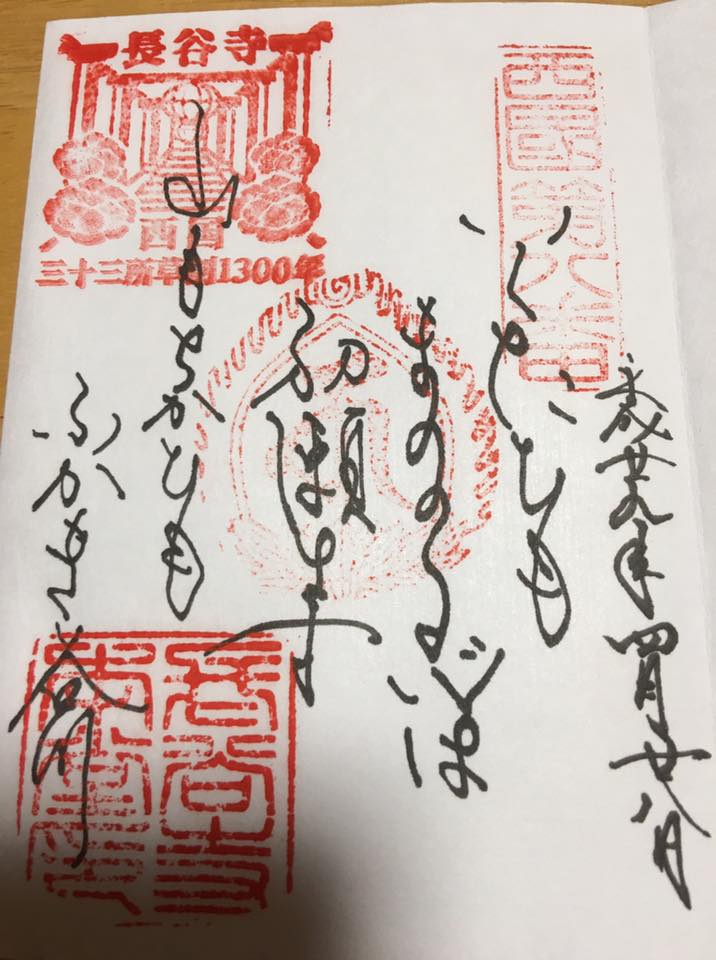 平成廿九年四月廿八日
西國第八番
いくたびも
まゐる心は
初瀬寺
山もちかひも
ふかき谷川
長谷寺
西国
三十三所草創1300年
長谷寺